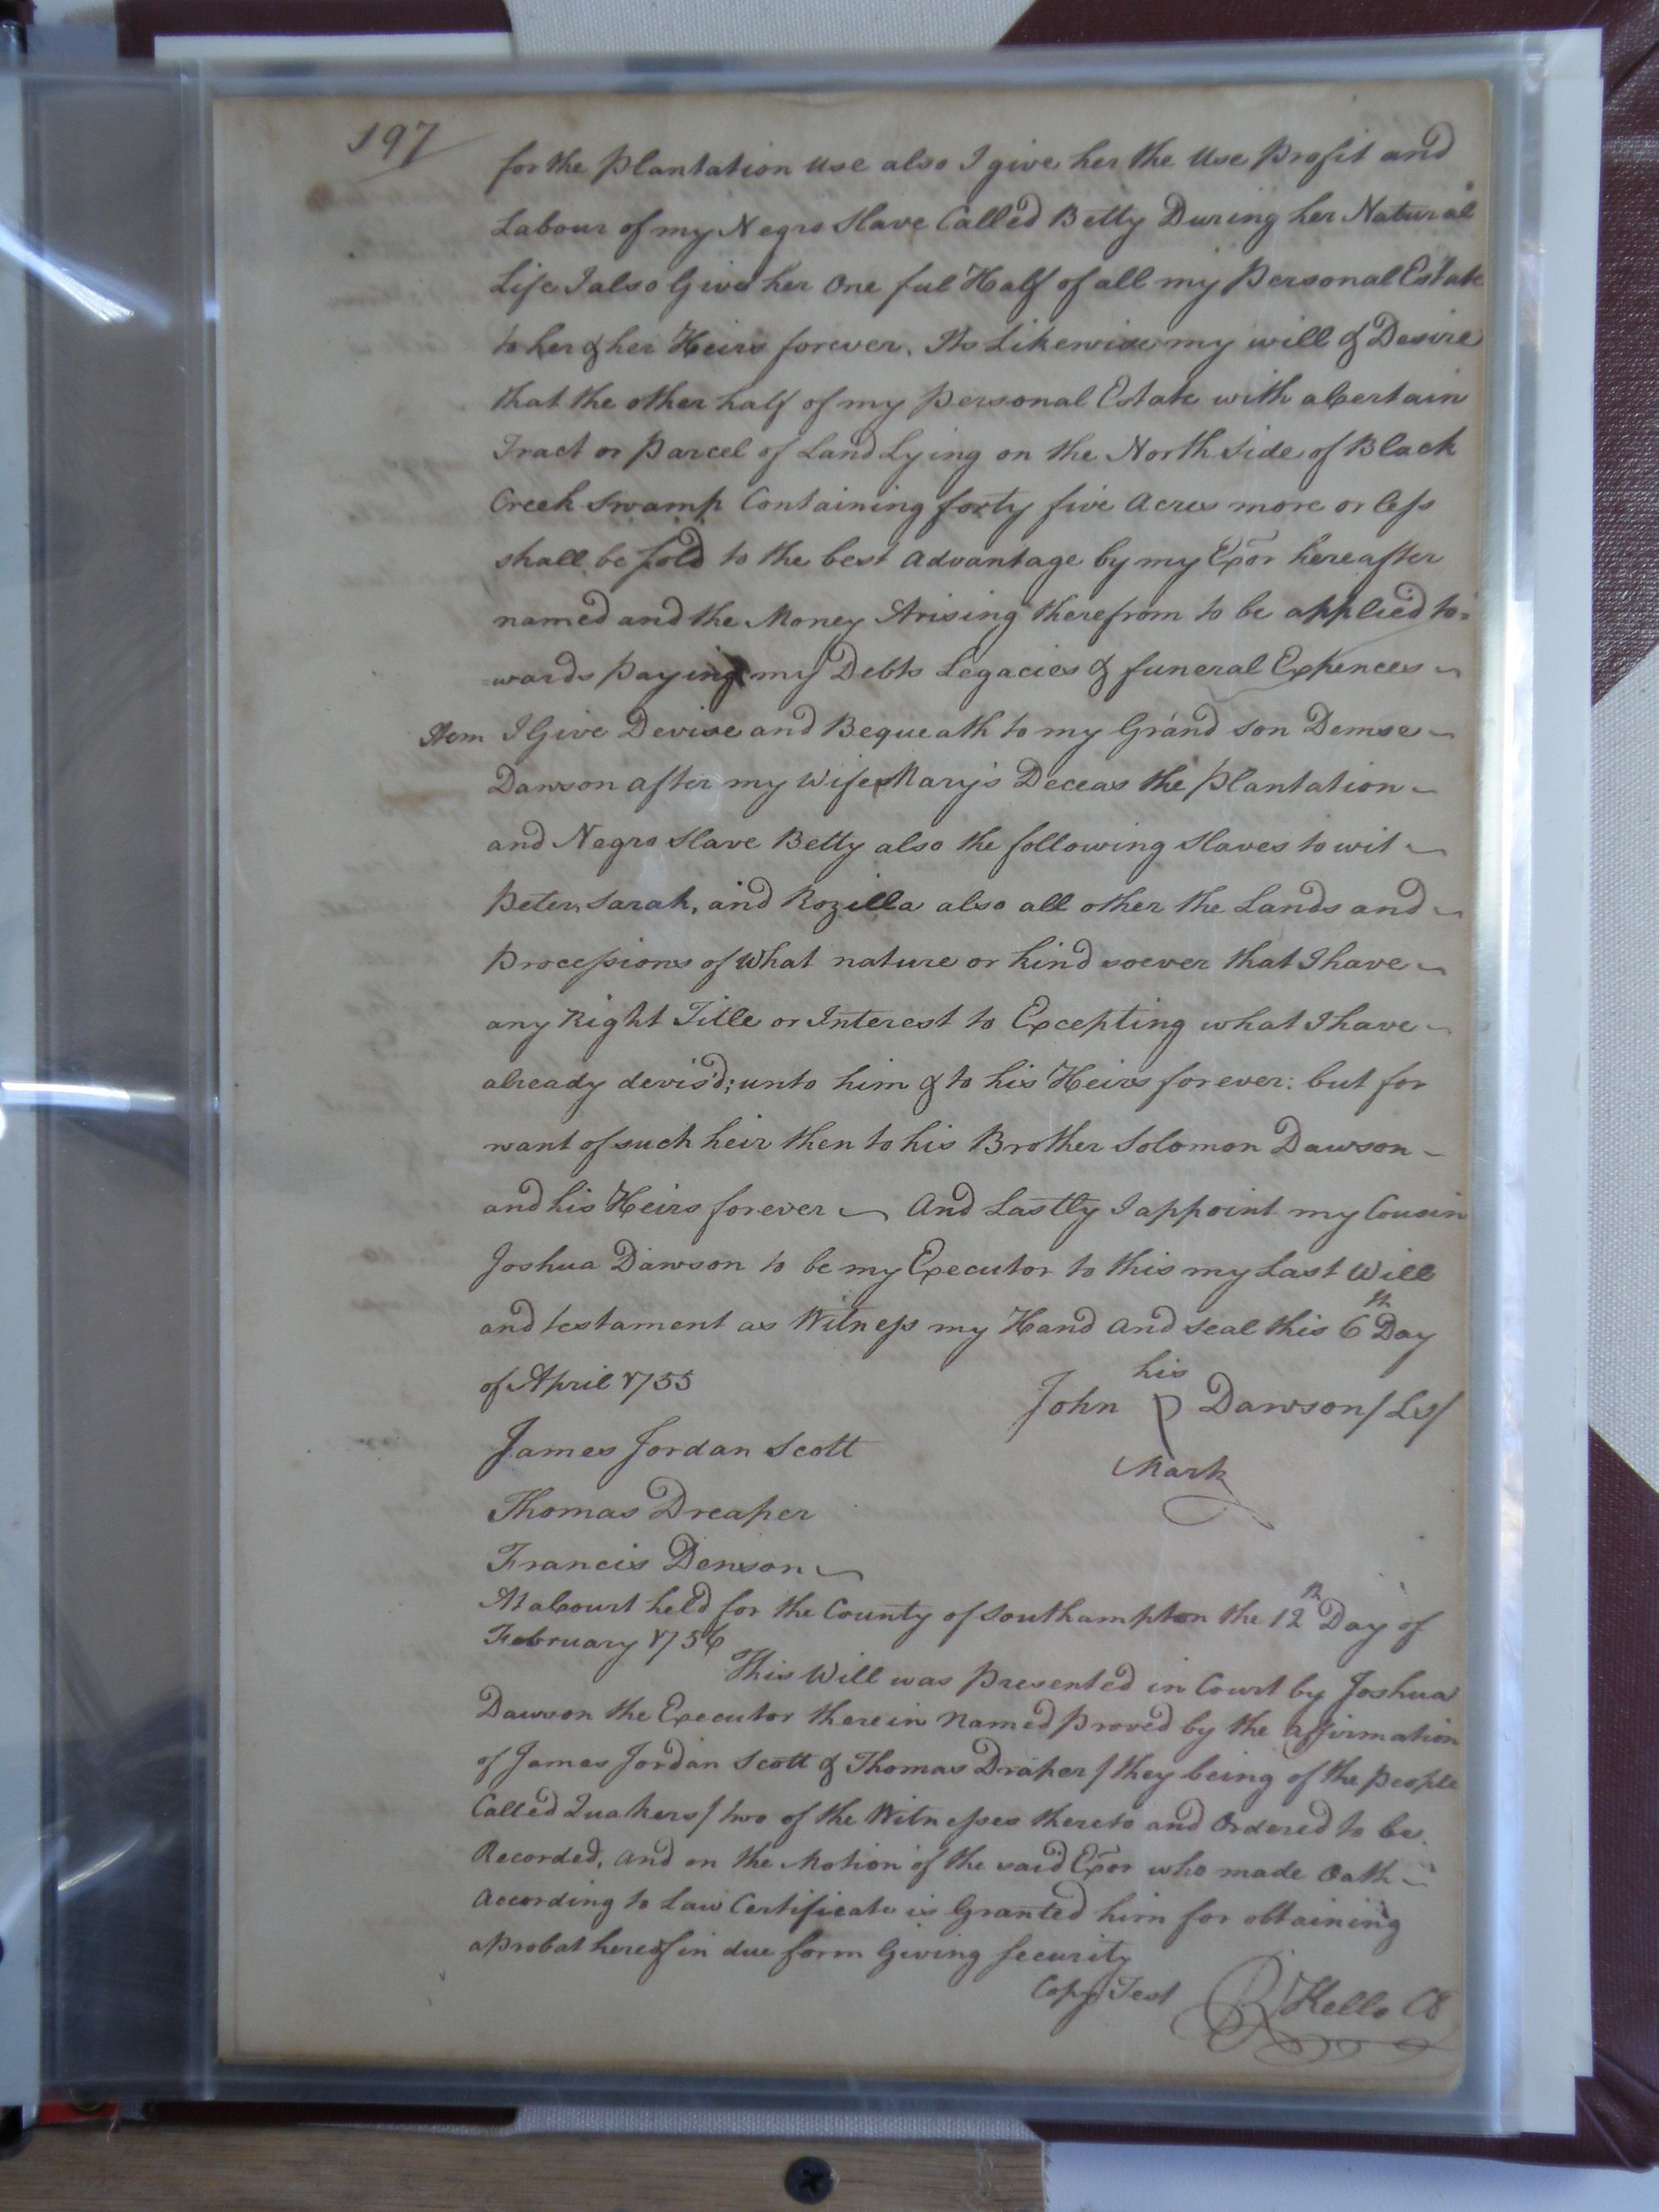 197
for the Plantation use also I give her the Use Profit and
Labour of my Negro Slave Called Betty During her Natural
Life I also Give her One ful Half of all my Personal Estate
to her & her Heirs forever. Its Likewise my will & Desire
that the other half of my Personal Estate with a Certain
Tract or Parcel of Land Lying on the North Side of Black
Creek Swamp Containing forty five Acres more or less
shall be sold to the best Advantage by my Exor hereafter
named and the Money Arising therefrom to be applied to=
=wards Paying my Debts Legacies & funeral Expences
Item I Give Devise and Bequeath to my Grand son Demse
Dawson after my Wife Mary's Deceas the Plantation
and Negro Slave Betty also the following Slaves to wit
Peter, Sarah, and Rozilla also all other the Lands and
Processions of What nature or kind soever that I have
any Right Title or Interest to Excepting what I have
already devis'd; unto him & to his Heirs for ever: but for
want of such heir then to his Brother Solomon Dawson
and his Heirs forever And Lastly I appoint my Cousin
Joshua Dawson to be my Executor to this my Last Will
and testament as Witness my Hand and seal this 6th Day
of April 1755
his
John P Dawson /LS/
Mark
James Jordan Scott
Thomas Dreaper
Francis Denson
At a Court held for the County of Southampton the 12th Day of
February 1756
This Will was Presented in Court by Joshua
Dawson the Executor therein Named Proved by the Affirmation
of James Jordan Scott & Thomas Draper / they being of the People
Called Quakers / two of the Witnesses thereto and Ordered to be
Recorded, and on the Motion of the said Exor who made Oath
According to Law Certificate is Granted him for obtaining
a Probat hereof in due form Giving Security
Copy Test R Kello CC